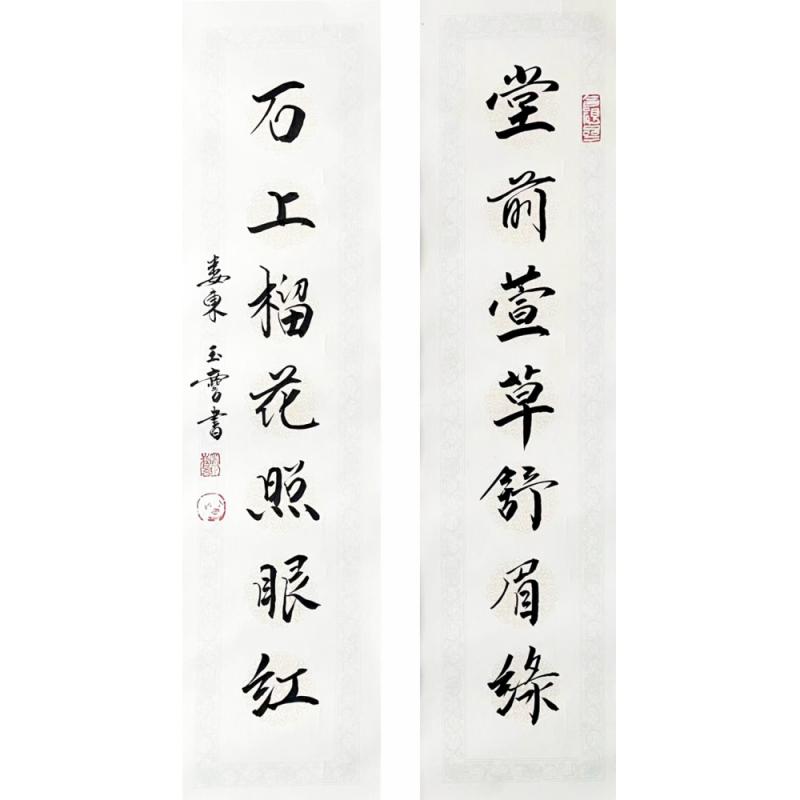 堂前萱草舒眉綠
石上榴花照眼紅
婁東 玉雪書